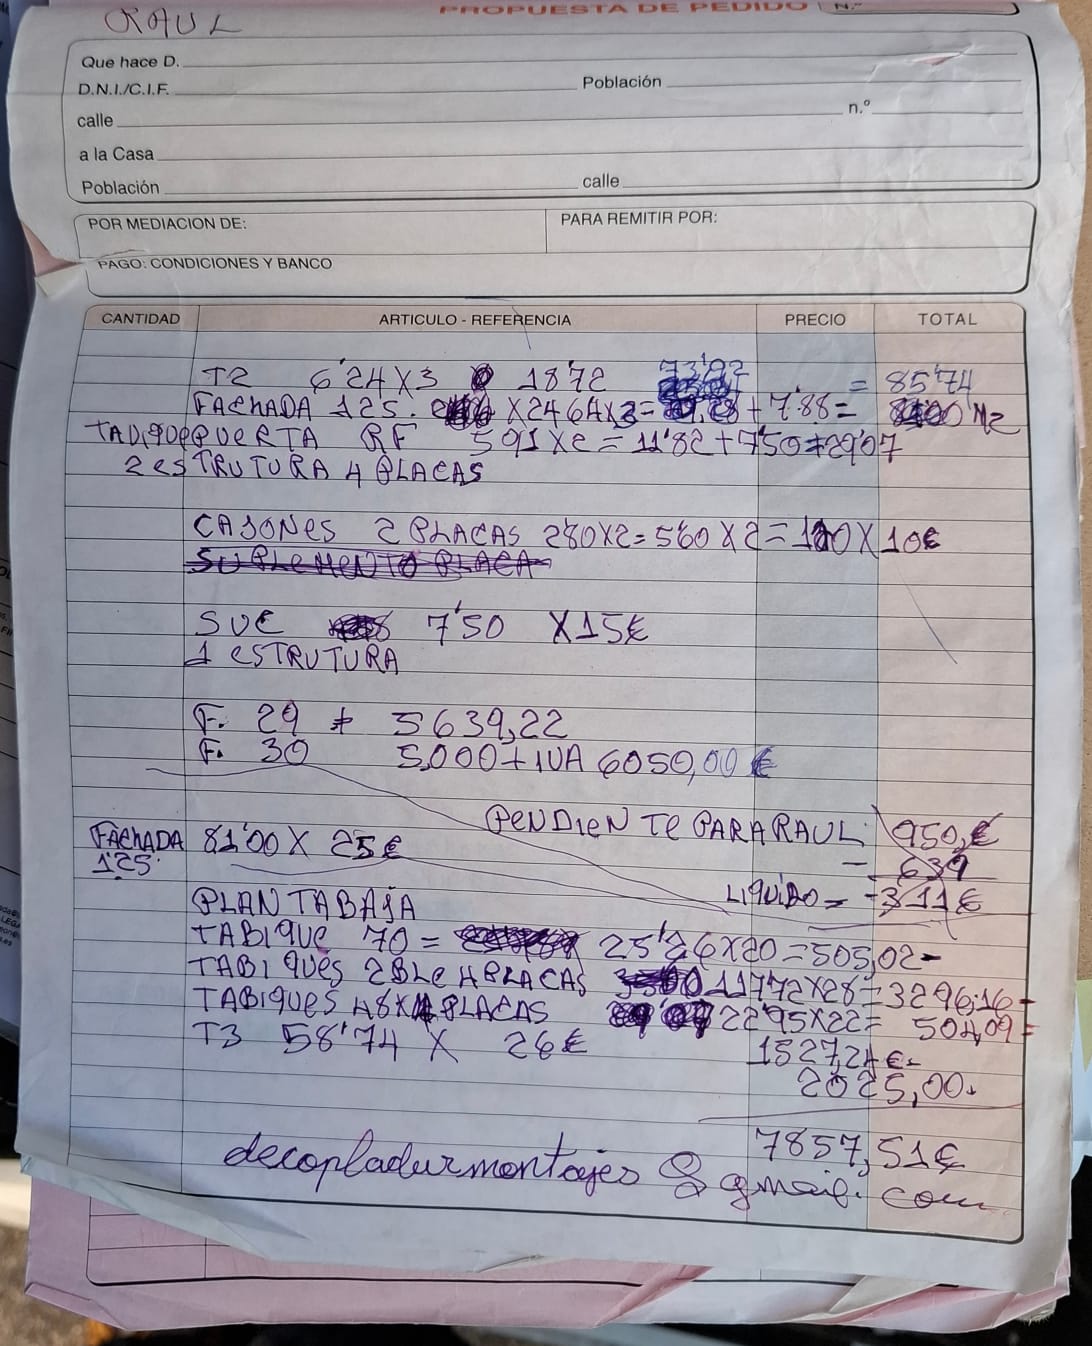 PROPUESTA DE PEDIDO N.º
RAUL
Que hace D.
D.N.I./C.I.F. Población
calle n.º
a la Casa
Población calle
POR MEDIACION DE: PARA REMITIR POR:
PAGO: CONDICIONES Y BANCO
CANTIDAD ARTICULO - REFERENCIA PRECIO TOTAL
T2 6'24X3 18'72 73'92 = 85'74
FACHADA 125. X2464X3= + 7'88= M2
TABIQUE PUERTA RF 591X2=11'82+7'50+2907
2 ESTRUTURA 4 PLACAS
CAJONES 2 PLACAS 280X2=560X2= X10€
SUPLEMENTO PLACA
SUE 7'50 X15€
1 ESTRUTURA
F. 29 + 5639,22
F. 30 5,000+IVA 6050,00 €
PENDIENTE PARA RAUL 950,€
FACHADA 81'00 X 25€ - 639
125. LIQUIDO = -311€
PLANTA BAJA
TABIQUE 70 = 25'26X20=505,02-
TABIQUES 2BLE HPLACAS 11772X28=3296,16-
TABIQUES 48X PLACAS 2295X22= 504,09=
T3 58'74 X 26€ 1527,24€-
2025,00.
7857,51€
decopladurmontajes @ gmail.com